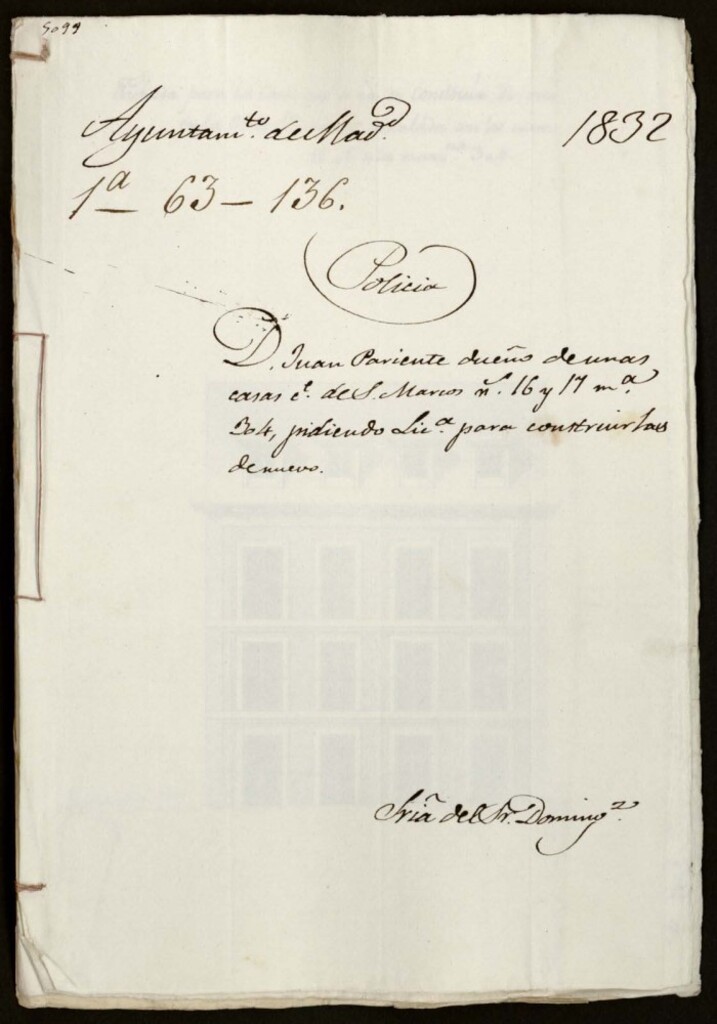 5099
Ayuntam.to de Mad.d 1832
1a 63-136.
Policia
D. Juan Pariente dueño de unas
casas c.e de S. Marcos n.s 16 y 17 m.a
304, pidiendo Lic.a para construirlas
de nuevo.
Sria del Sr. Doming.z